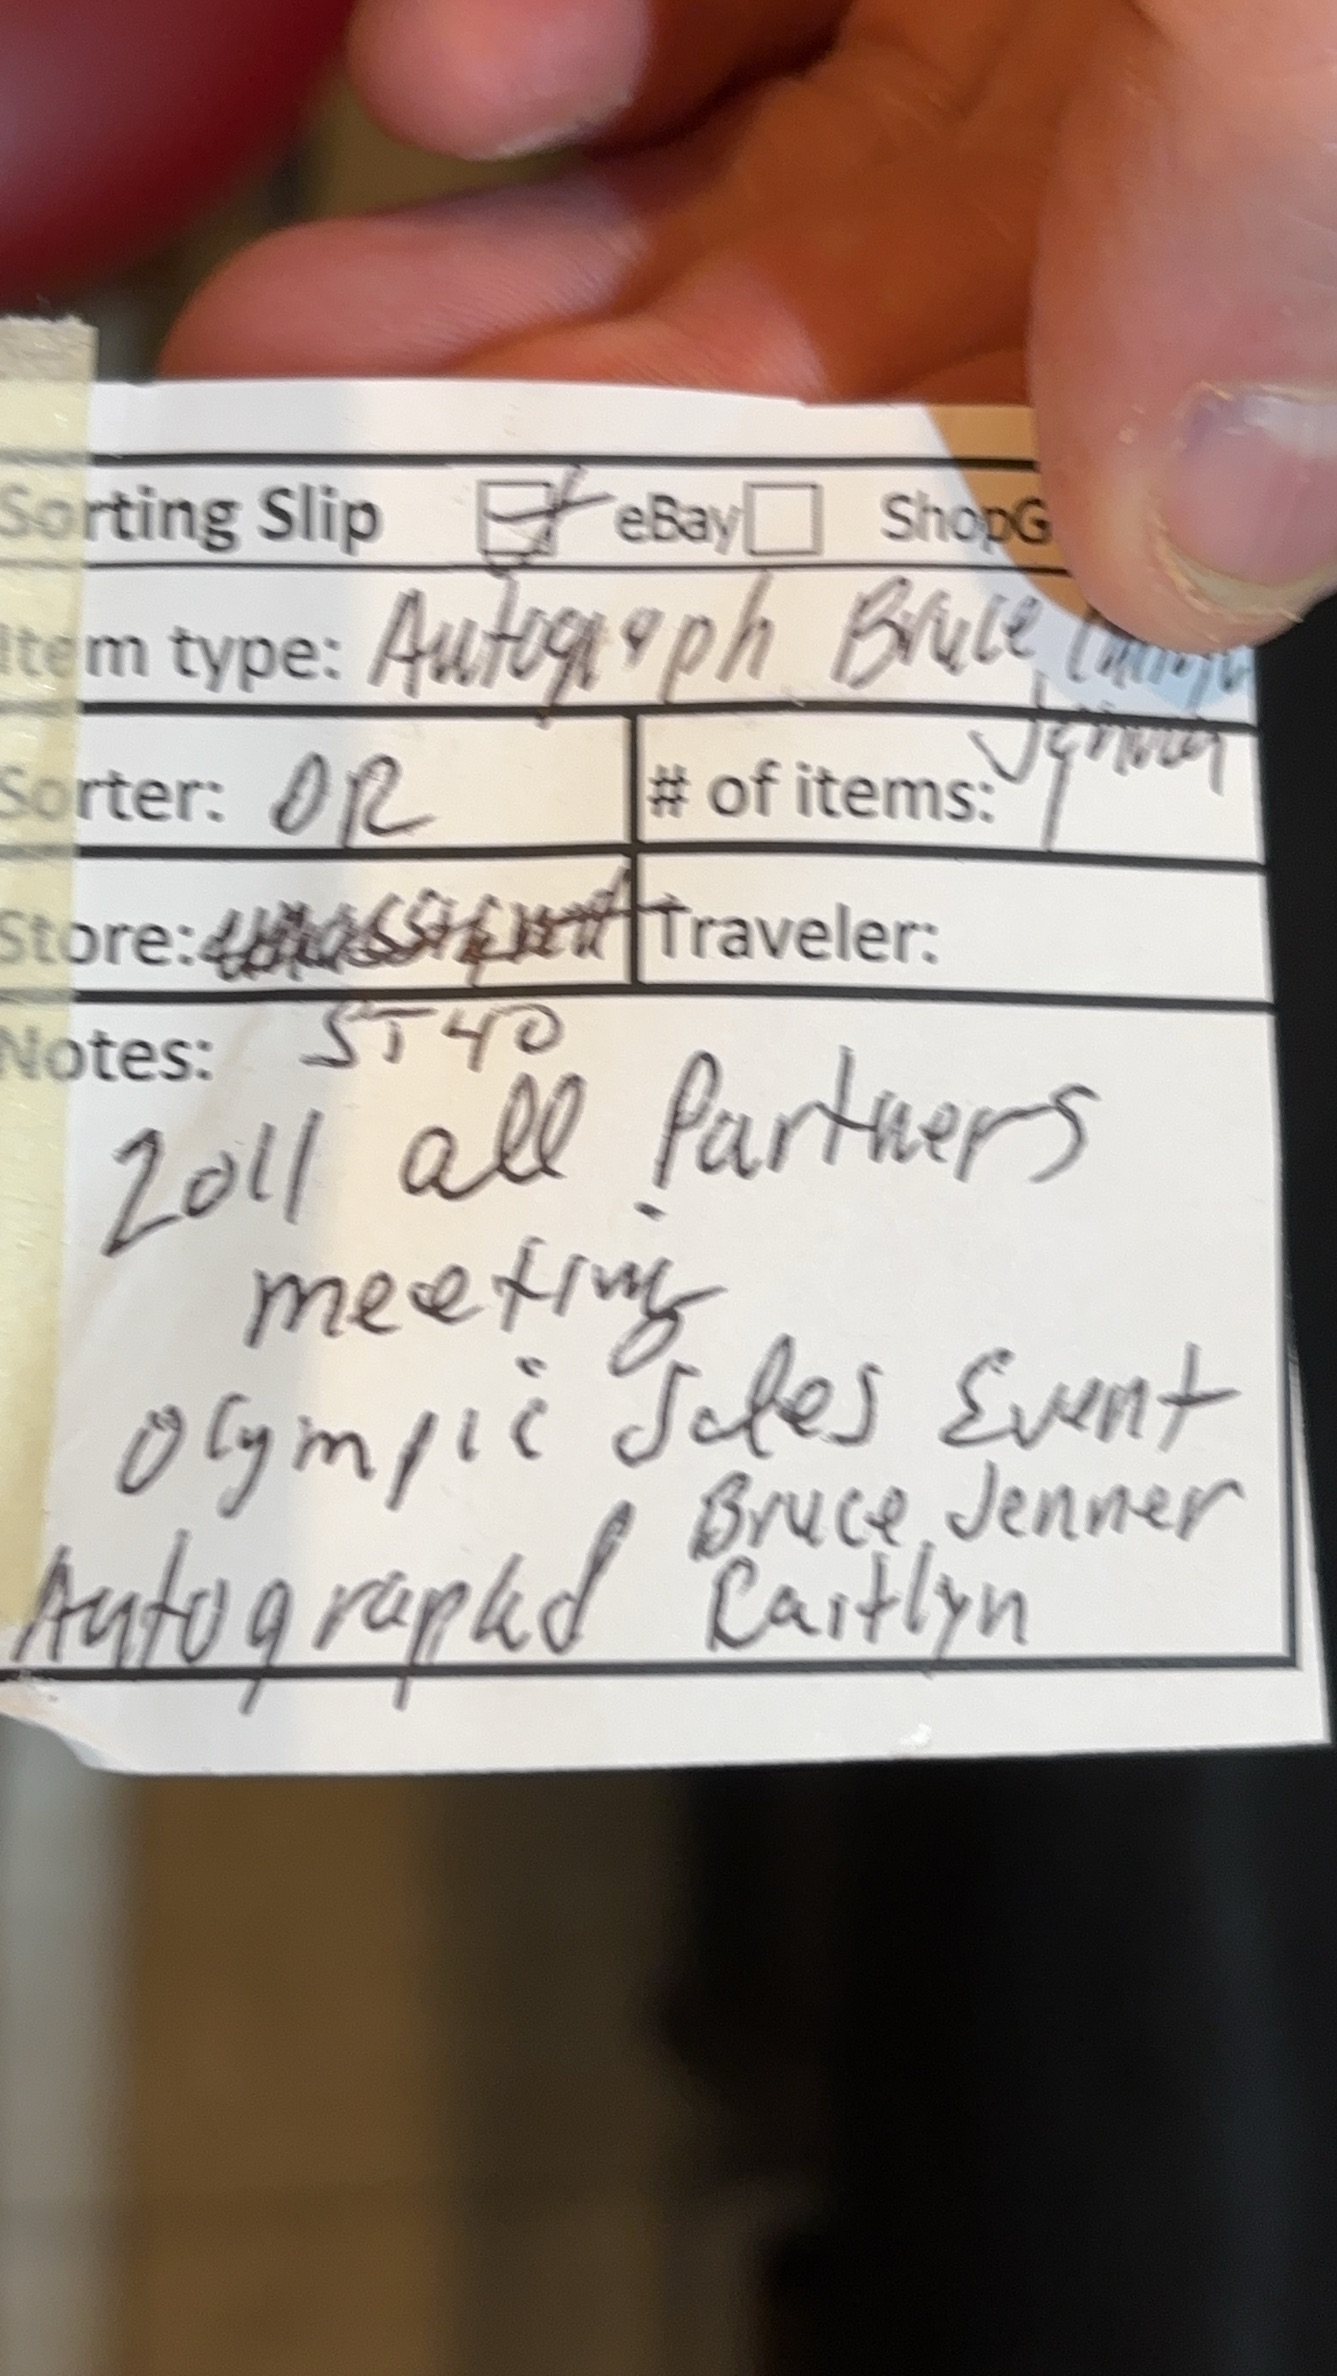 Sorting Slip eBay ShopG
Item type: Autograph Bruce Caitlyn
Jenner
Sorter: OR # of items: 1
Store: Traveler:
Notes: ST40
2011 all Partners
meeting
Olympic Sales Event
Bruce Jenner
Autographd Caitlyn